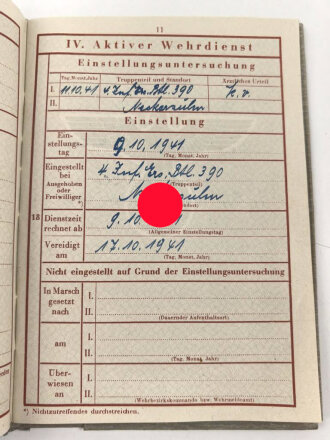 11
IV. Aktiver Wehrdienst
Einstellungsuntersuchung
Tag, Monat, Jahr Truppenteil und Standort Ärztliches Urteil
I. 11.10.41 4. Inf. Ers. Btl. 390 k. v.
II. Neckarsulm
Einstellung
Ein-
stellungs-
tag
9.10.1941
(Tag, Monat, Jahr)
Eingestellt
bei
Ausgehoben
oder
Freiwilliger *)
4. Inf. Ers. Btl. 390
(Truppenteil)
18
Dienstzeit
rechnet ab
9.10.
(Allgemeiner Einstellungstag)
Vereidigt
am
17.10.1941
(Tag, Monat, Jahr)
Nicht eingestellt auf Grund der Einstellungsuntersuchung
In Marsch
gesetzt
nach
I.
II.
(Dauernder Aufenthaltsort)
am
I.
II.
(Tag, Monat, Jahr)
Über-
wiesen
an
I.
II.
(Wehrbezirkskommando bzw. Wehrmeldeamt)
*) Nichtzutreffendes durchstreichen.